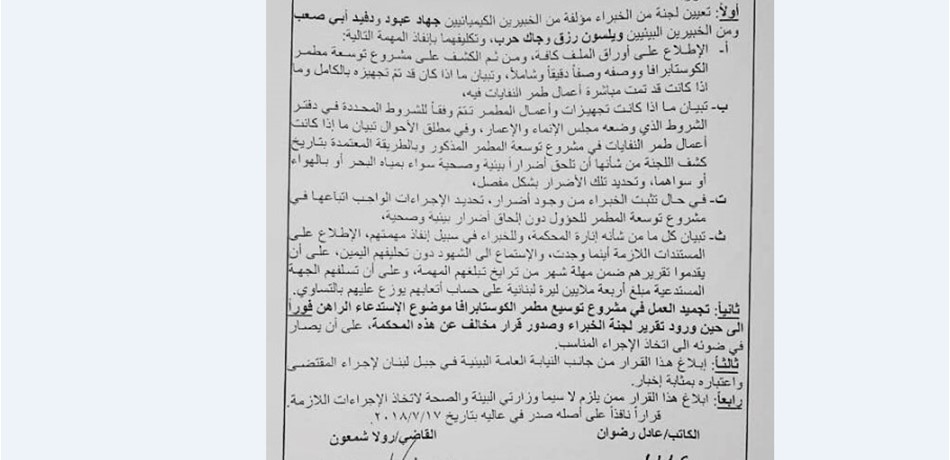 أولاً: تعيين لجنة من الخبراء مؤلفة من الخبيرين الكيميائيين جهاد عبود ودفيد أبي صعب
ومن الخبيرين البيئيين ويلسون رزق وجاك حرب، وتكليفهما بإنفاذ المهمة التالية:
أ- الإطلاع على أوراق الملف كافة، ومن ثم الكشف على مشروع توسعة مطمر
الكوستابرافا ووصفه وصفاً دقيقاً وشاملاً، وتبيان ما اذا كان قد تمّ تجهيزه بالكامل وما
اذا كانت قد تمت مباشرة أعمال طمر النفايات فيه،
ب- تبيان ما اذا كانت تجهيزات وأعمال المطمر تتمّ وفقاً للشروط المحددة في دفتر
الشروط الذي وضعه مجلس الإنماء والإعمار، وفي مطلق الأحوال تبيان ما إذا كانت
أعمال طمر النفايات في مشروع توسعة المطمر المذكور وبالطريقة المعتمدة بتاريخ
كشف اللجنة من شأنها أن تلحق أضراراً بيئية وصحية سواء بمياه البحر أو بالهواء
أو سواهما، وتحديد تلك الأضرار بشكل مفصل،
ت- في حال تثبت الخبراء من وجود أضرار، تحديد الإجراءات الواجب اتباعها في
مشروع توسعة المطمر للحؤول دون إلحاق أضرار بيئية وصحية،
ث- تبيان كل ما من شأنه إنارة المحكمة، وللخبراء في سبيل إنفاذ مهمتهم، الإطلاع على
المستندات اللازمة أينما وجدت، والإستماع الى الشهود دون تحليفهم اليمين، على أن
يقدموا تقريرهم ضمن مهلة شهر من ترايخ تبلغهم المهمة، وعلى أن تسلفهم الجهة
المستدعية مبلغ أربعة ملايين ليرة لبنانية على حساب أتعابهم يوزع عليهم بالتساوي.
ثانياً: تجميد العمل في مشروع توسيع مطمر الكوستابرافا موضوع الإستدعاء الراهن فوراً
الى حين ورود تقرير لجنة الخبراء وصدور قرار مخالف عن هذه المحكمة، على أن يصار
في ضوئه الى اتخاذ الإجراء المناسب.
ثالثاً: إبلاغ هذا القرار من جانب النيابة العامة البيئية في جبل لبنان لإجراء المقتضى
واعتباره بمثابة إخبار.
رابعاً: ابلاغ هذا القرار ممن يلزم لا سيما وزارتي البيئة والصحة لاتخاذ الإجراءات اللازمة.
قراراً نافذاً على أصله صدر في عاليه بتاريخ ٢٠١٨/٧/١٧
الكاتب/عادل رضوان القاضي/رولا شمعون